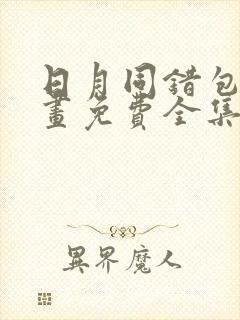 日月同错包
畫免費全集
異界魔人